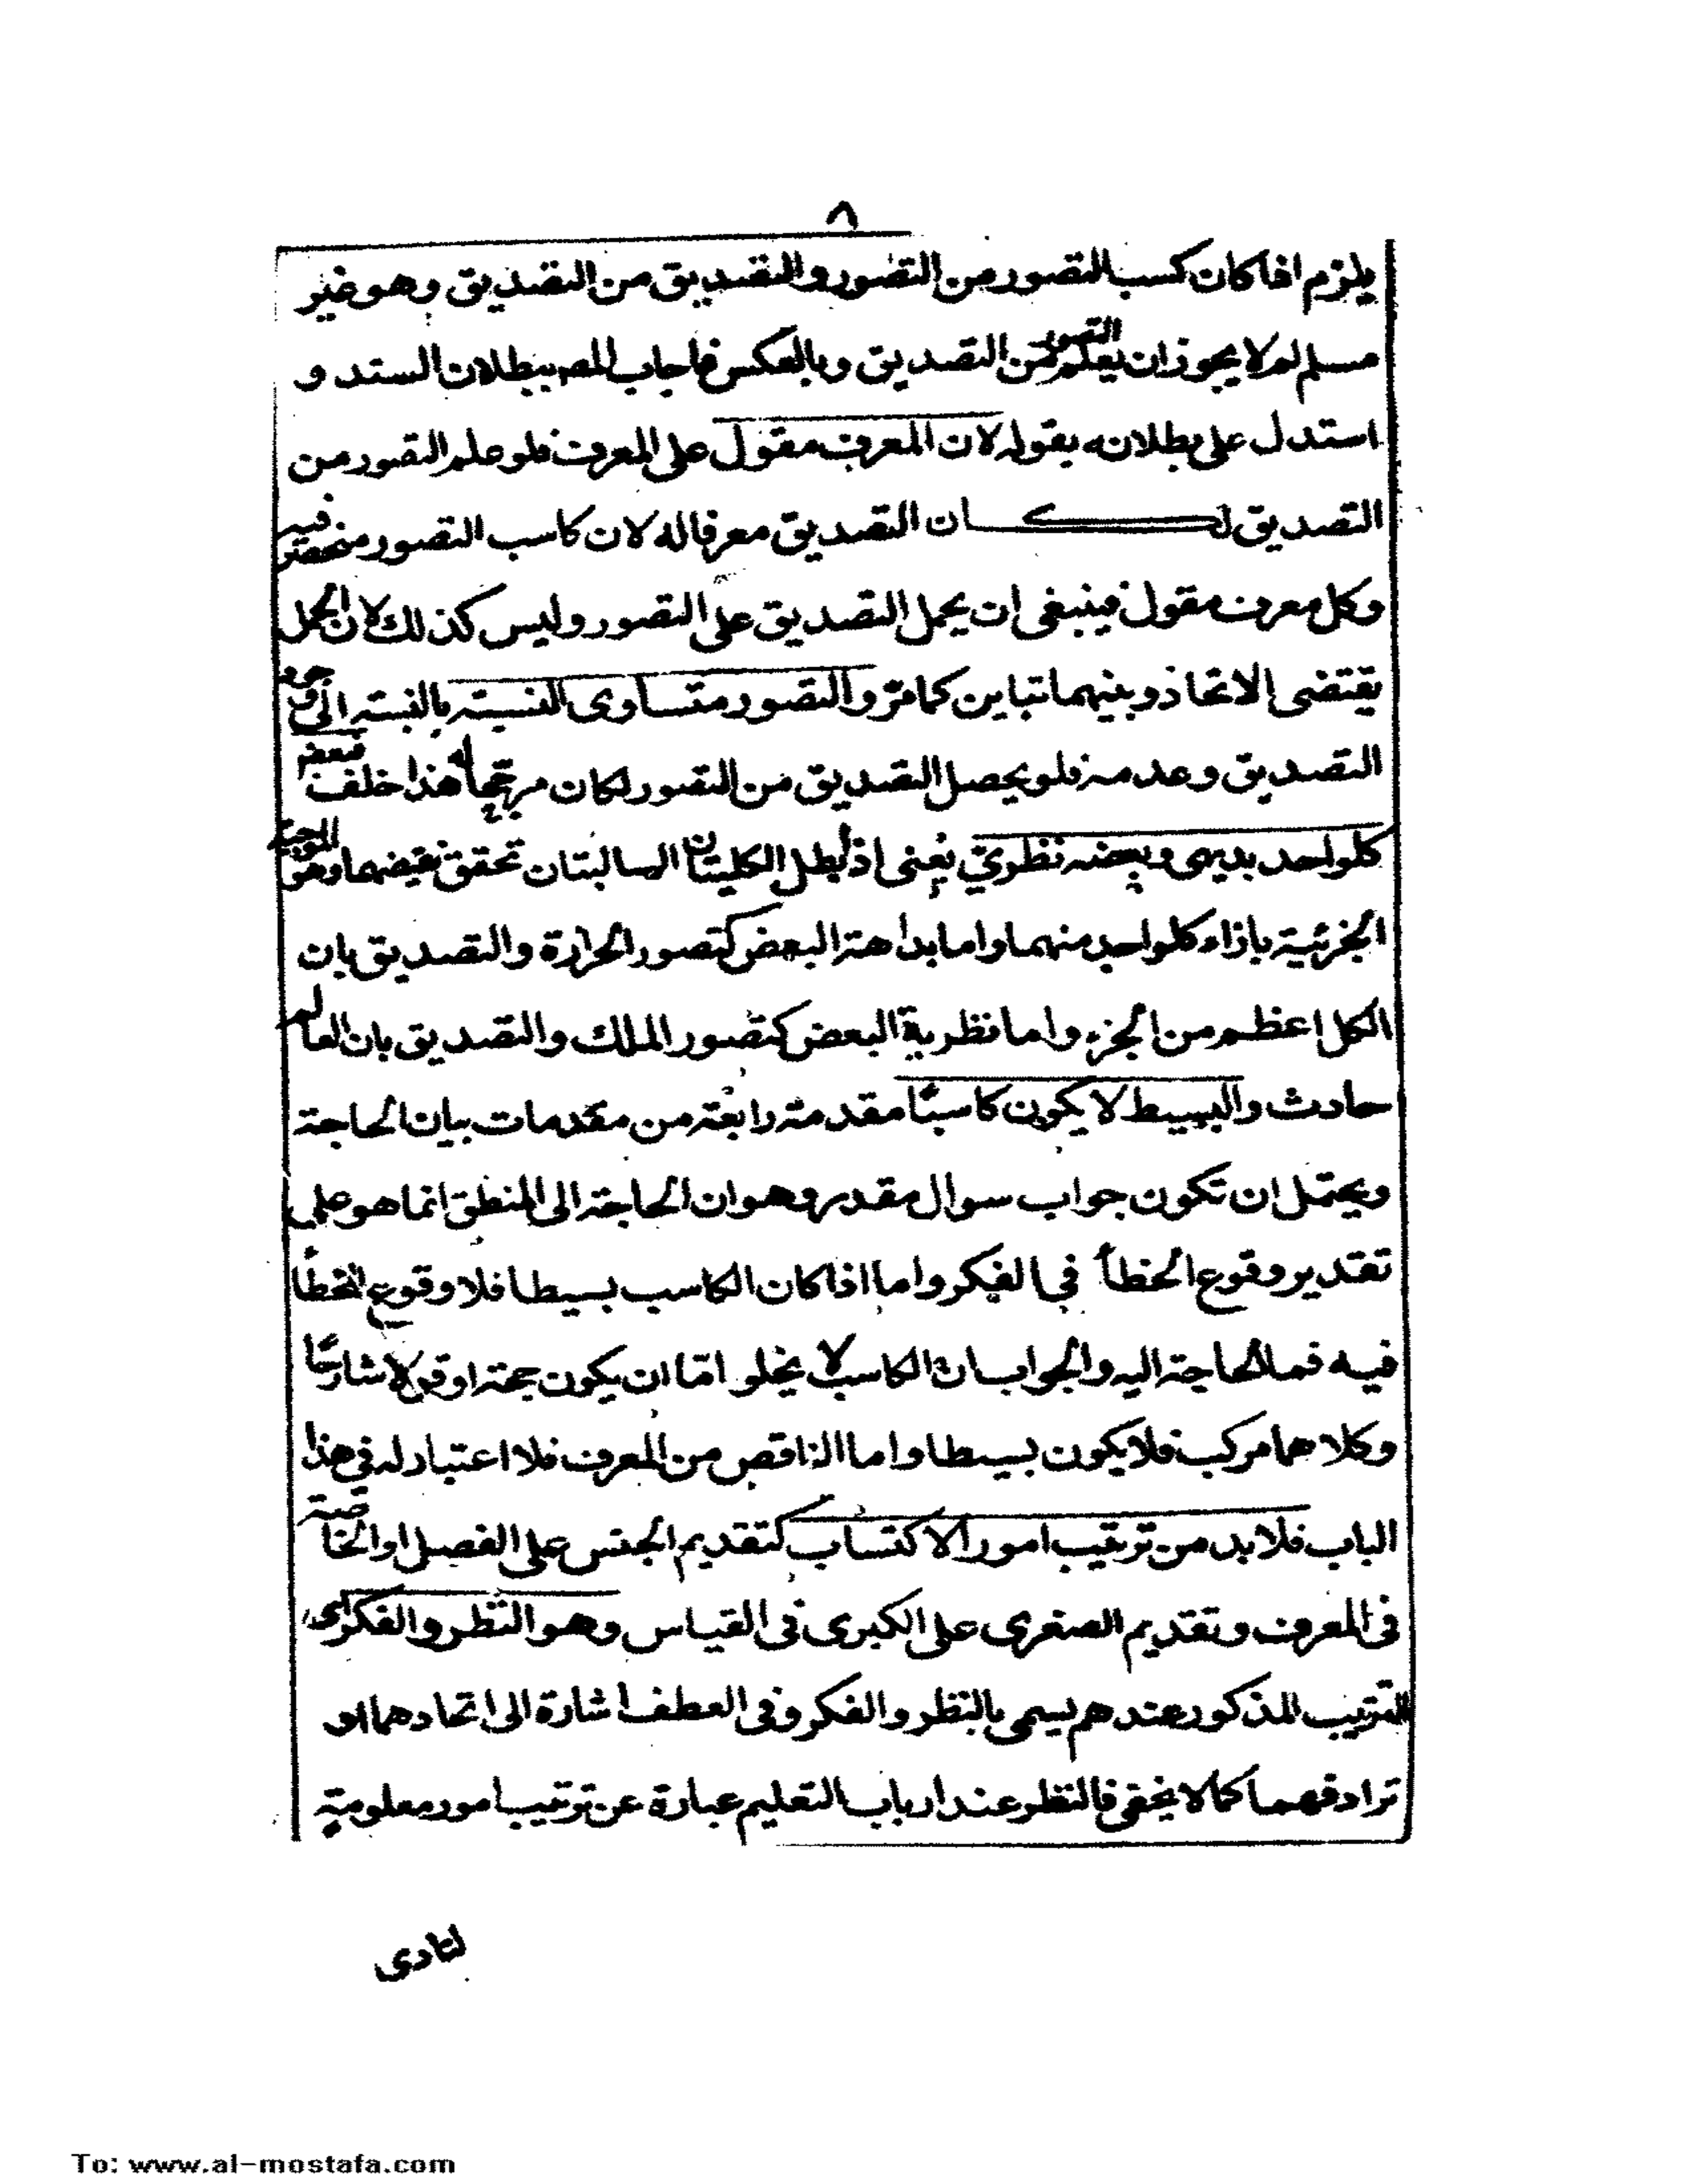 ٨
يلزم اذا كان كسب التصور من التصور والتصديق من التصديق وهو غير
مسلم لم لا يجوز ان يعلم التصور من التصديق وبالعكس فاجاب المصـ ببطلان السند و
استدل على بطلانه بقوله لان المعرف مقول على المعرف فلو علم التصور من
التصديق لكان التصديق معرفا له لان كاسب التصور منحصر فيه
وكل معرف مقول فينبغى ان يحمل التصديق على التصور وليس كذلك لان الحمل
يقتضى الاتحاد وبينهما تباين كما مرّ والتصور متساوى النسبة بالنسبة الى وجود
التصديق وعدمه فلو يحصل التصديق من التصور لكان مرجحا له هذا خلف فبعض
كلواحد بديهى وبعضه نظرىّ يعنى اذ بطل الكليتان السالبتان تحقق نقيضهما وهو الموجبة
الجزئية بازاء كلواحد منهما واما بداهة البعض كتصور الحرارة والتصديق بان
الكل اعظم من الجزء واما نظرية البعض كتصور الملك والتصديق بان العالم
حادث والبسيط لا يكون كاسبًا مقدمة رابعة من مقدمات بيان الحاجة
ويحتمل ان تكون جواب سوال مقدر وهو ان الحاجة الى المنطق انما هو على
تقدير وقوع الخطأ فى الفكر واما اذا كان الكاسب بسيطا فلا وقوع الخطأ
فيه فما الحاجة اليه والجواب ان الكاسب لا يخلو امّا ان يكون حجة او قولا شارحًا
وكلاهما مركب فلا يكون بسيطا واما الناقص من المعرف فلا اعتبار له فى هذا
الباب فلا بد من ترتيب امور الاكتساب كتقديم الجنس على الفصل او الخاصة
فى المعرف وتقديم الصغرى على الكبرى فى القياس وهو النظر والفكر اى
الترتيب المذكور عندهم يسمى بالنظر والفكر وفى العطف اشارة الى اتحادهما او
ترادفهما كما لا يخفى فالنظر عند ارباب التعليم عبارة عن ترتيب امور معلومة
لتادى
To: www.al-mostafa.com